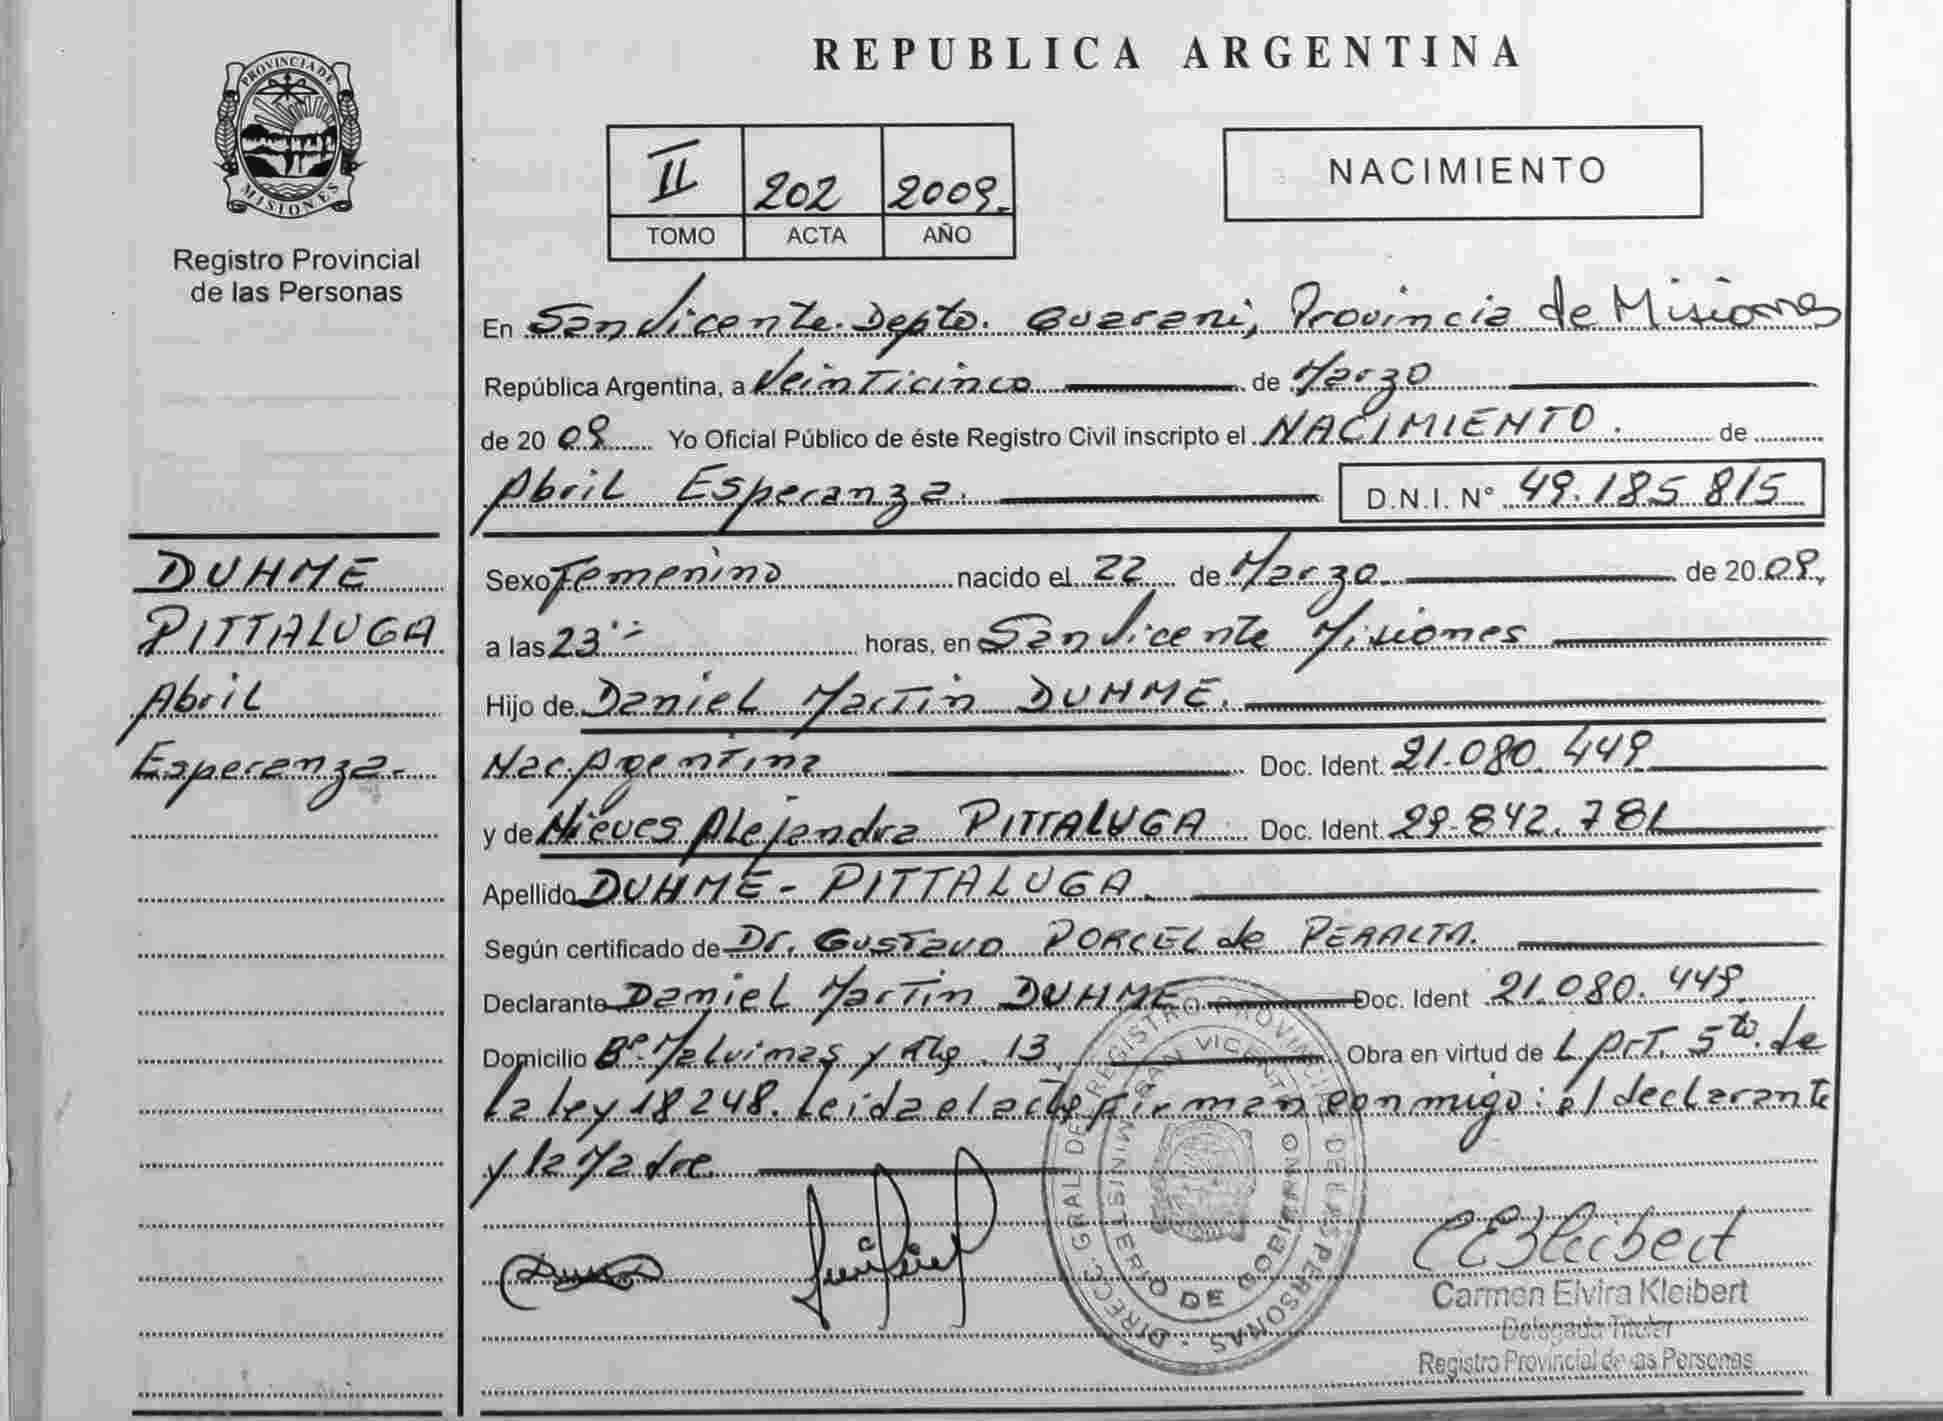 REPUBLICA ARGENTINA
PROVINCIA DE
MISIONES
Registro Provincial
de las Personas
II 202 2009.
TOMO ACTA AÑO
NACIMIENTO
En San Vicente. Depto. Guarani, Provincia de Misiones
República Argentina, a Veinticinco de Marzo
de 20 09 Yo Oficial Público de éste Registro Civil inscripto el NACIMIENTO. de
Abril Esperanza. D.N.I. N° 49.185 815
DUHME
PITTALUGA
Abril
Esperanza.-
Sexo Femenino nacido el 22 de Marzo. de 20 09.
a las 23 horas, en San Vicente Misiones
Hijo de Daniel Martin DUHME.
Nac. Agentina Doc. Ident. 21.080.449
y de Nieves Alejandra PITTALUGA Doc. Ident. 29.842.781
Apellido DUHME - PITTALUGA.
Según certificado de Dr. Gustavo PORCEL de PERALTA.
Declarante Daniel Martin DUHME Doc. Ident 21.080.449
Domicilio B° Malvinas y 13 Obra en virtud de L Art. 5to. de
la ley 18248. Leida el acta firman conmigo: el declarante
y la Madre.
DIREC. GRAL. DE REGISTRO PROVINCIAL DE LAS PERSONAS
MINISTERIO DE GOBIERNO
SAN VICENTE
CEKleibert
Carmen Elvira Kleibert
Delegada Titular
Registro Provincial de las Personas